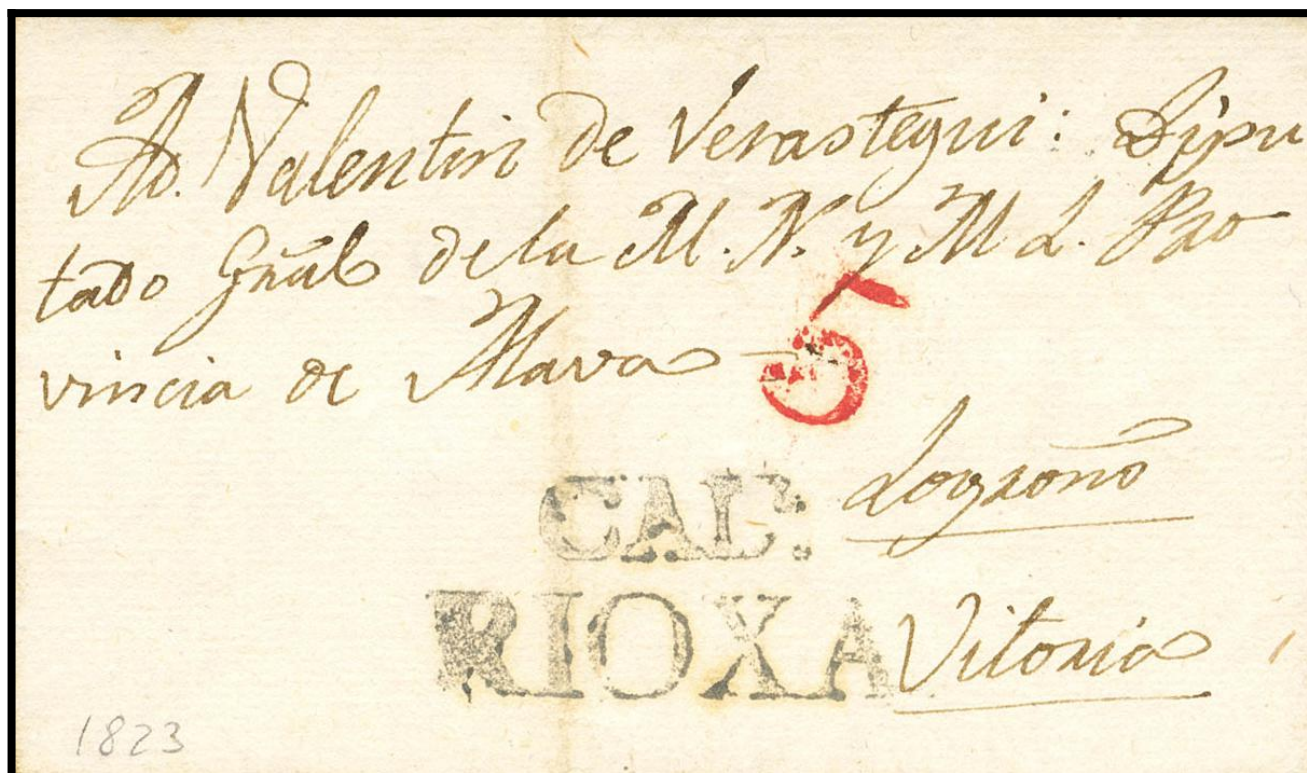 Ad. Valentin de Verastegui: Dipu
tado Gñal de la M. N. y M L. Pro
vincia de Alava
5
Logroño
CAL^D:
RIOXA
Vitoria
1823